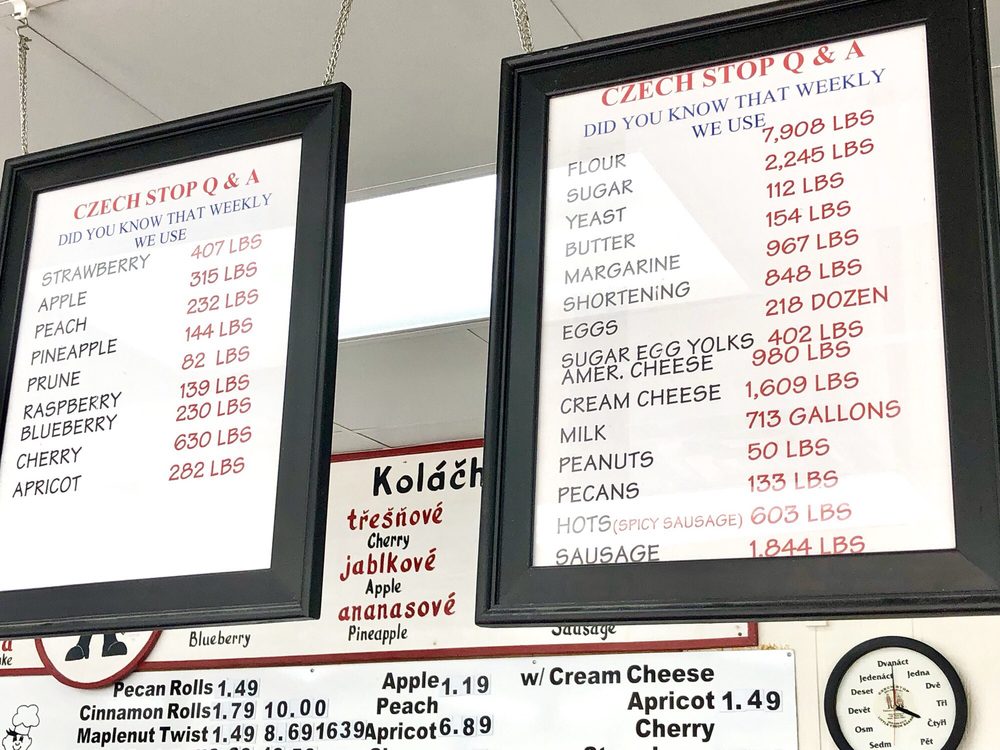 CZECH STOP Q & A
DID YOU KNOW THAT WEEKLY
WE USE
STRAWBERRY 407 LBS
APPLE 315 LBS
PEACH 232 LBS
PINEAPPLE 144 LBS
PRUNE 82 LBS
RASPBERRY 139 LBS
BLUEBERRY 230 LBS
CHERRY 630 LBS
APRICOT 282 LBS
CZECH STOP Q & A
DID YOU KNOW THAT WEEKLY
WE USE
FLOUR 7,908 LBS
SUGAR 2,245 LBS
YEAST 112 LBS
BUTTER 154 LBS
MARGARINE 967 LBS
SHORTENING 848 LBS
EGGS 218 DOZEN
SUGAR EGG YOLKS 402 LBS
AMER. CHEESE 980 LBS
CREAM CHEESE 1,609 LBS
MILK 713 GALLONS
PEANUTS 50 LBS
PECANS 133 LBS
HOTS (SPICY SAUSAGE) 603 LBS
SAUSAGE 1,844 LBS
Koláčh
třešňové
Cherry
jablkové
Apple
ananasové
Pineapple
Blueberry
Sausage
Pecan Rolls 1.49
Cinnamon Rolls 1.79 10.00
Maplenut Twist 1.49 8.69 1639
Apple 1.19
Peach
Apricot 6.89
w/ Cream Cheese
Apricot 1.49
Cherry
Dvanáct
Jedna
Dvě
Tři
Čtyři
Pět
Sedm
Osm
Devět
Deset
Jedenáct